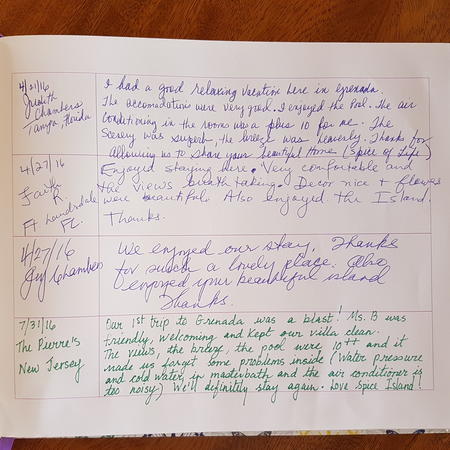 4/21/16
Judith
Chambers
Tampa, Florida
I had a good relaxing vacation here in Grenada.
The accomodations were very good. I enjoyed the Pool. The air
conditioning in the rooms was a plus 10 for me. The
Scenery was superb, the breeze was heavenly. Thanks for
allowing us to share your beautiful Home (Spice of Life)
4/27/16
Faith
R.
Ft Lauderdale
FL.
Enjoyed staying here. Very comfortable and
the views breath taking. Decor nice + flowers
were beautiful. Also enjoyed the Island.
Thanks.
4/27/16
Chambers
We enjoyed our stay. Thanke
for such a lovely place. Also
enjoyed your beautiful island
Thanks.
7/31/16
The Pierre's
New Jersey
Our 1st trip to Grenada was a blast! Ms. B was
friendly, welcoming and kept our villa clean.
The views, the breeze, the pool were 10++ and it
made us forget some problems inside (water pressure
and cold water in masterbath and the air conditioner is
too noisy) We'll definitely stay again. Love Spice Island!